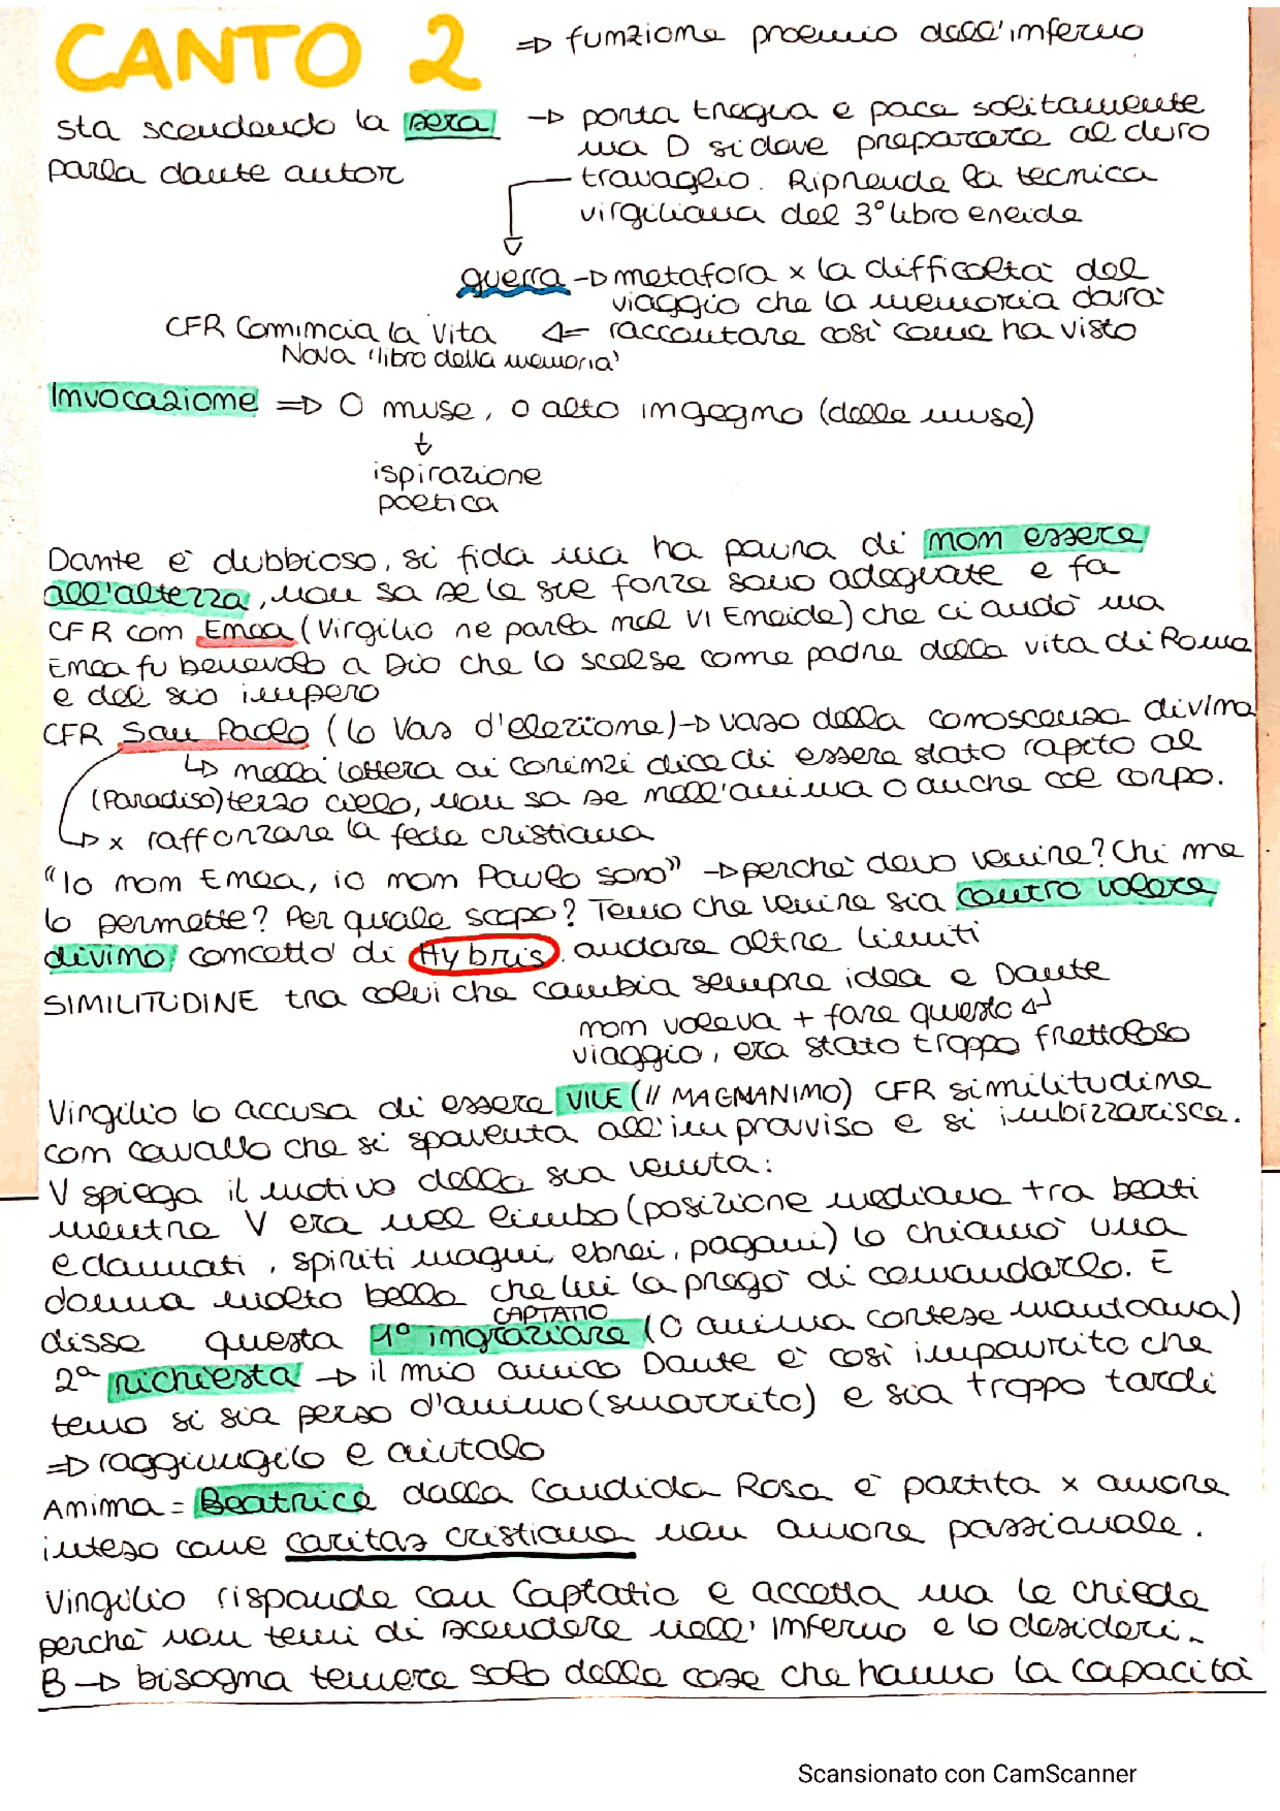 CANTO 2 => funzione proemio dell'inferno
sta scendendo la sera -> porta tregua e pace solitamente
ma D si deve preparare al duro
parla dante autor
travaglio. Riprende la tecnica
virgiliana del 3° libro eneide
guerra -> metafora x la difficoltà del
viaggio che la memoria darà
CFR Comincia la Vita <= raccontare così come ha visto
Nova "libro della memoria"
Invocazione => O muse, o alto ingegno (delle muse)
↓
ispirazione
poetica
Dante è dubbioso, si fida ma ha paura di non essere
all'altezza, non sa se le sue forze sono adeguate e fa
CFR con Enea (Virgilio ne parla nel VI Eneide) che ci andò ma
Enea fu benevolo a Dio che lo scelse come padre della vita di Roma
e del suo impero
CFR San Paolo (lo Vas d'elezione) -> vaso della conoscenza divina
↳ nella lettera ai Corinzi dice di essere stato rapito al
(Paradiso) terzo cielo, non sa se nell'anima o anche col corpo.
↳ x rafforzare la fede cristiana
"Io non Enea, io non Paulo sono" -> perchè devo venire? Chi me
lo permette? Per quale scopo? Temo che venire sia contro volere
divino concetto di Hybris. andare oltre limiti
SIMILITUDINE tra colui che cambia sempre idea e Dante
non voleva + fare questo ↵
viaggio, era stato troppo frettoloso
Virgilio lo accusa di essere VILE (// MAGNANIMO) CFR similitudine
con cavallo che si spaventa all'improvviso e si imbizzarisce.
V spiega il motivo della sua venuta:
mentre V era nel limbo (posizione mediana tra beati
e dannati, spiriti magni, ebrei, pagani) lo chiamò una
donna molto bella che lui la pregò di comandarlo. E
CAPTATIO
disse questa 1° ingraziare (O anima cortese mantoana)
2ª richiesta -> il mio amico Dante è così impaurito che
temo si sia perso d'animo (smarrito) e sia troppo tardi
=> raggiungilo e aiutalo
Anima = Beatrice dalla Candida Rosa è partita x amore
inteso come caritas cristiana non amore passionale.
Virgilio risponde con Captatio e accetta ma le chiede
perchè non temi di scendere nell'Inferno e lo desideri.
B -> bisogna temere solo delle cose che hanno la capacità
Scansionato con CamScanner